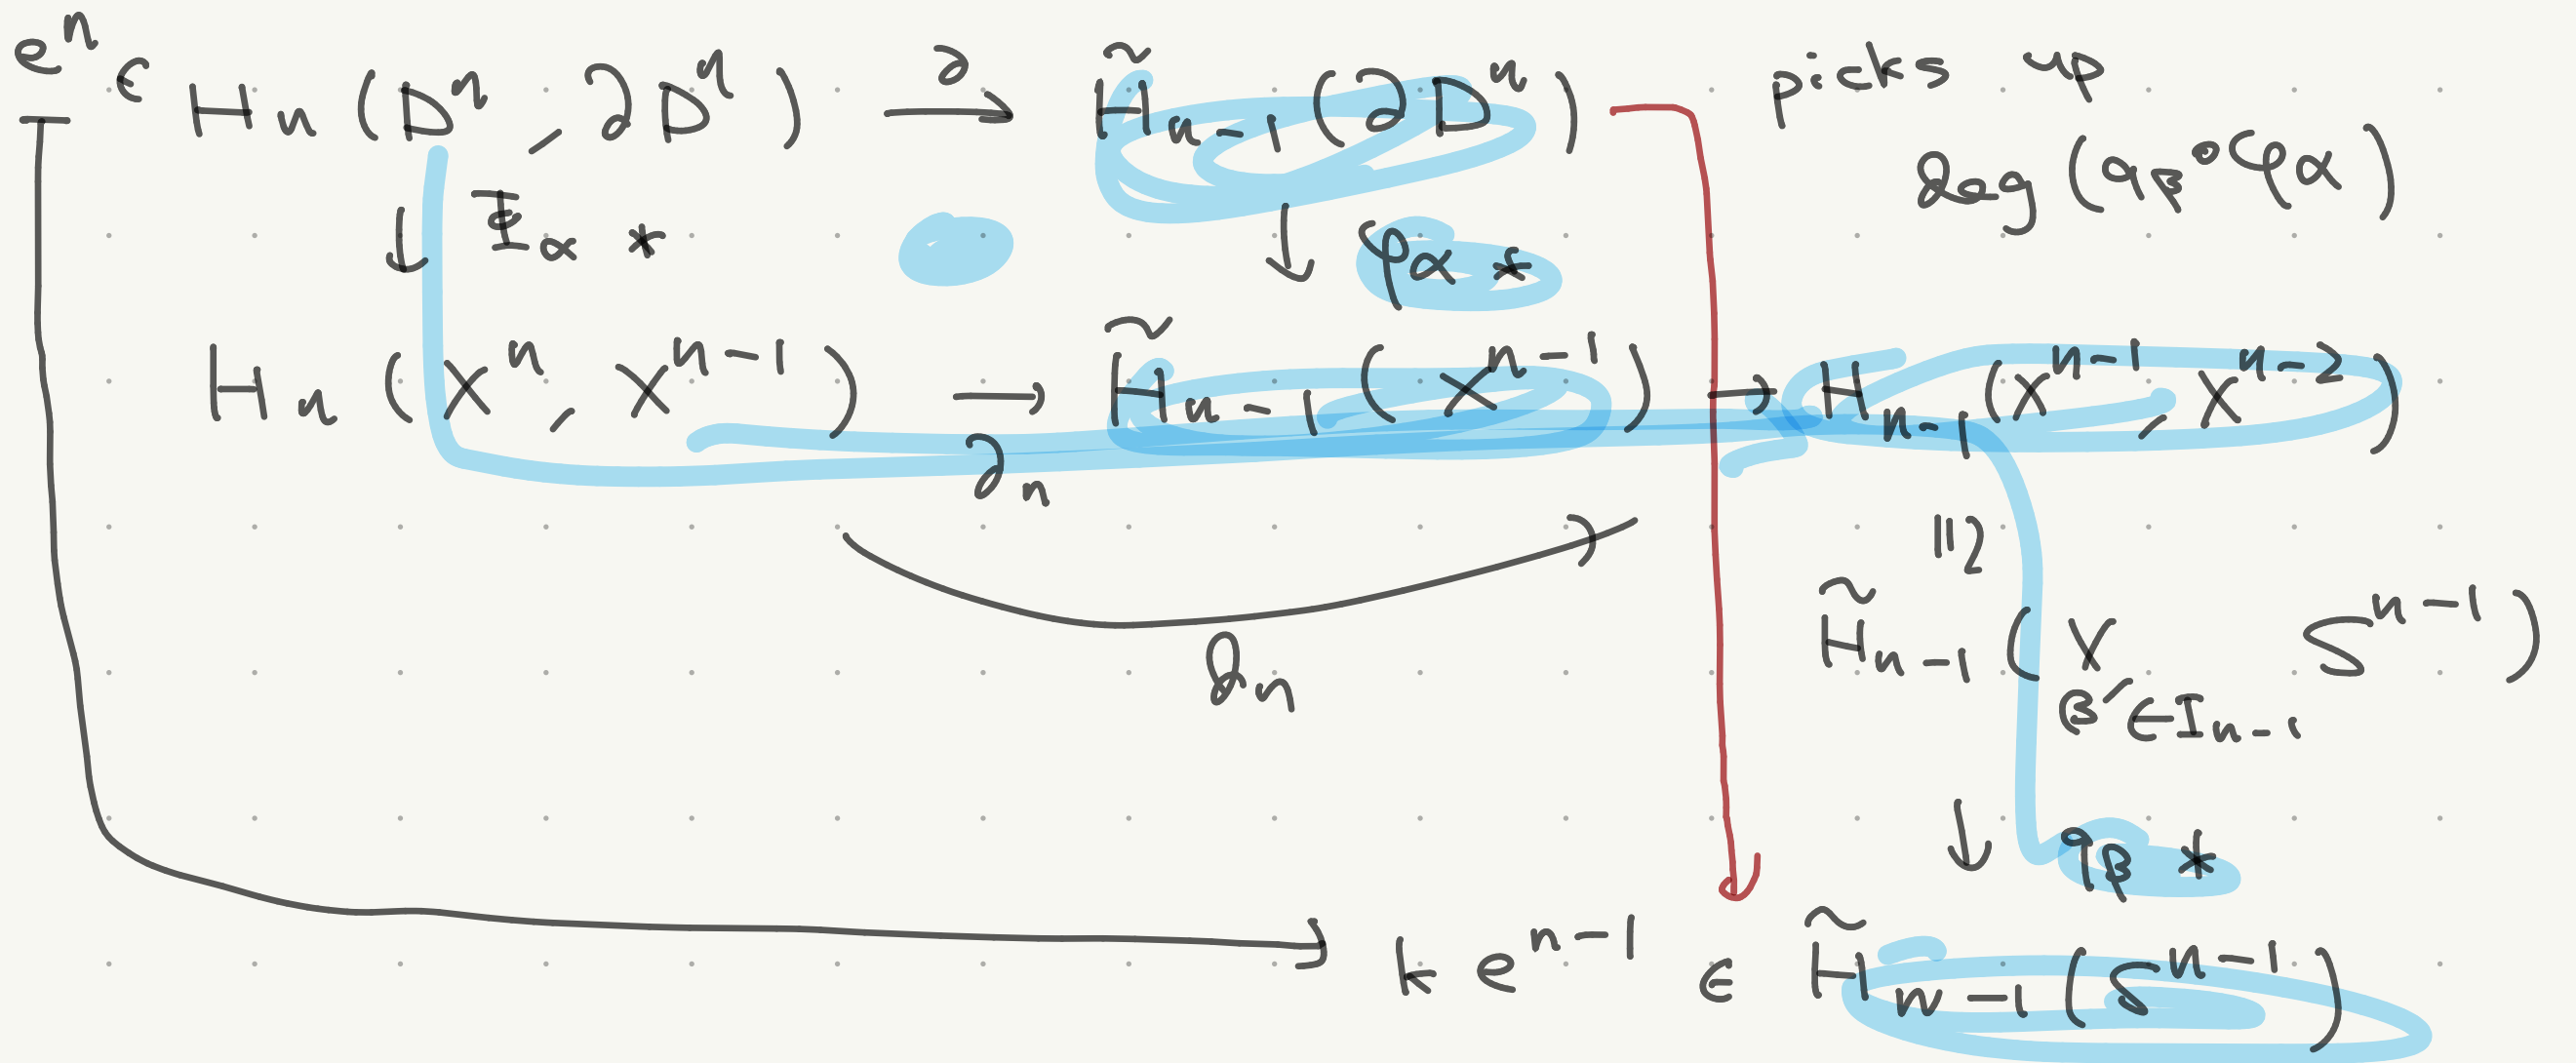 eⁿ ∈ Hₙ(Dⁿ, ∂Dⁿ) →∂ H̃ₙ₋₁(∂Dⁿ) picks up
↓ Φα * ↓ φα * deg(qβ∘φα)
Hₙ(Xⁿ, Xⁿ⁻¹) → H̃ₙ₋₁(Xⁿ⁻¹) → Hₙ₋₁(Xⁿ⁻¹, Xⁿ⁻²)
∂ₙ
≅
dₙ H̃ₙ₋₁(∨ Sⁿ⁻¹)
β'∈Iₙ₋₁
↓ qβ *
k eⁿ⁻¹ ∈ H̃ₙ₋₁(Sⁿ⁻¹)